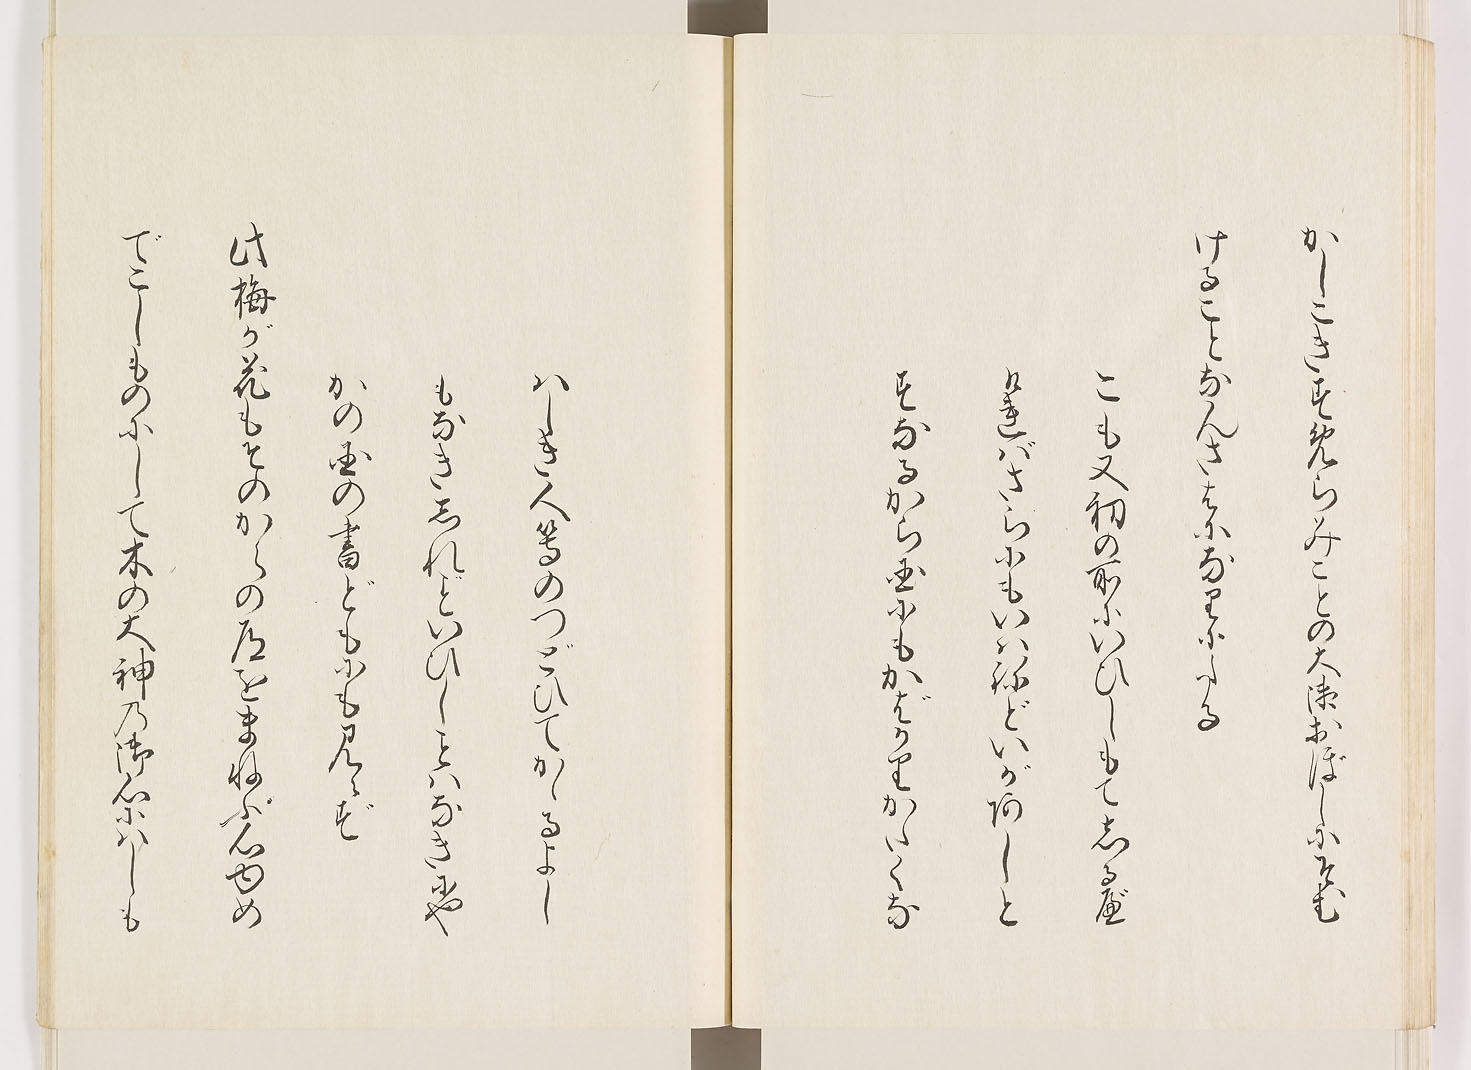 かしこきすめらみことの大御おぼしにそむ
けることなんさはになりにたる
こも又初の所にいひしもてしるべ
ければさらにもいはねどいが何しと
すなるから国にもかばかりかたくな
はしき人等のつどひてかゝるよし
もなきしれどいひしことはなきにや
かの国の書どもにも見えず
此梅が花もそのからの道をまねぶ心ゆめ
でこしものにして木の大神の御心にはしも